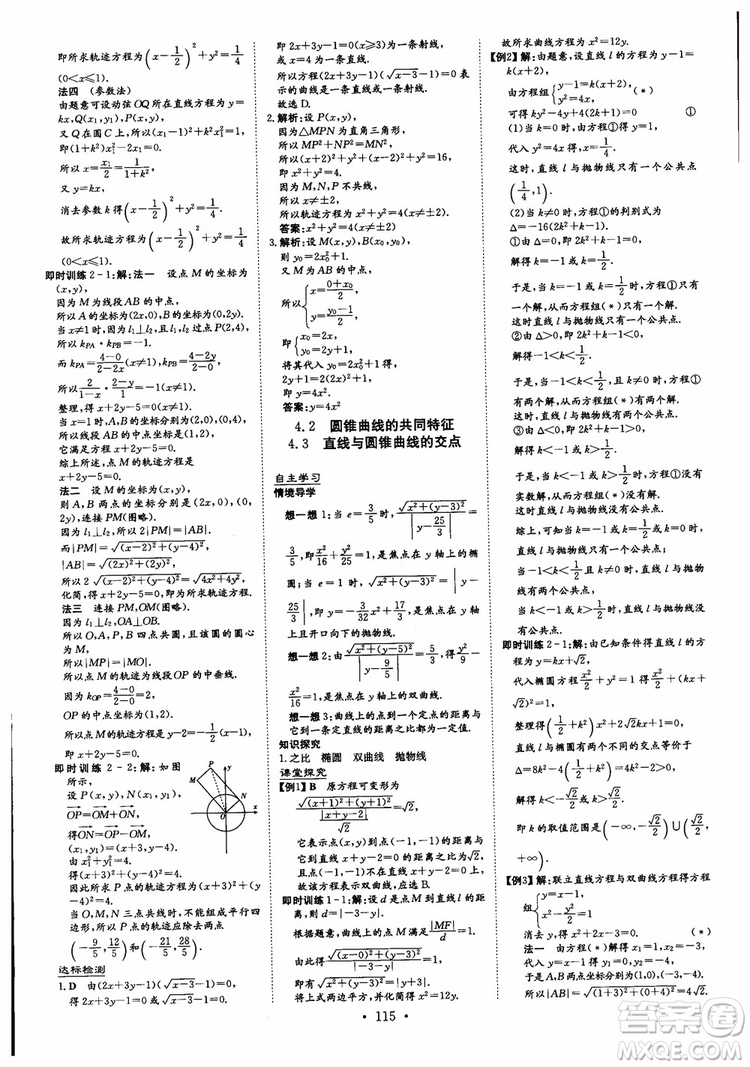 即所求轨迹方程为(x-1/2)²+y²=1/4
(0<x≤1).
法四 (参数法)
由题意可设动弦OQ所在直线方程为y=
kx,Q(x₁,y₁),P(x,y),
又Q在圆上,所以(x₁-1)²+k²x₁²=1,
即(1+k²)x₁²-2x₁=0,
所以x=x₁/2=1/(1+k²).
又y=kx,
消去参数k得(x-1/2)²+y²=1/4.
故所求轨迹方程为(x-1/2)²+y²=1/4
(0<x≤1).
即时训练2-1:解:法一 设点M的坐标为
(x,y),
因为M为线段AB的中点,
所以A的坐标为(2x,0),B的坐标为(0,2y).
当x≠1时,因为l₁⊥l₂,且l₁,l₂过点P(2,4),
所以k_PA·k_PB=-1.
而k_PA=(4-0)/(2-2x)(x≠1),k_PB=(4-2y)/(2-0),
所以2/(1-x)·(2-y)/1=-1(x≠1).
整理,得x+2y-5=0(x≠1).
当x=1时,A,B的坐标分别为(2,0),(0,4),
所以线段AB的中点坐标是(1,2),它满足方程
x+2y-5=0.
综上所述,点M的轨迹方程是x+2y-5=0.
法二 设M的坐标为(x,y),
则A,B两点的坐标分别是(2x,0),(0,
2y),连接PM(图略).
因为l₁⊥l₂,所以2|PM|=|AB|.
而|PM|=√((x-2)²+(y-4)²),
|AB|=√((2x)²+(2y)²),
所以2√((x-2)²+(y-4)²)=√(4x²+4y²).
化简,得x+2y-5=0,即为所求轨迹方程.
法三 连接PM,OM(图略).
因为l₁⊥l₂,OA⊥OB,
所以O,A,P,B四点共圆,且该圆的圆心
为M,
所以|MP|=|MO|.
所以点M的轨迹为线段OP的中垂线.
因为k_OP=(4-0)/(2-0)=2,
OP的中点坐标为(1,2),
所以点M的轨迹方程是y-2=-1/2(x-1),
即x+2y-5=0.
即时训练2-2:解:如图
所示,
设P(x,y),N(x₁,y₁),
OP=OM+ON,
得ON=OP-OM,
即(x₁,y₁)=(x,y)-(-3,4)=(x+3,y-4).
因此所求P点的轨迹方程为(x+3)²+(y
-4)²=4.
当O,M,N三点共线时,不能构成平行四
边形,所以P点的轨迹方程需除去两点
(-9/5,12/5)和(-21/5,28/5).
达标检测
1.D 由(2x+3y-1)(√(x-3)-1)=0,
得2x+3y-1=0(x≥3)或√(x-3)-1=0.
即2x+3y-1=0(x≥3)为一条射线,
或x=4为一条直线.
所以方程(2x+3y-1)(√(x-3)-1)=0
表示的曲线是一条射线和一条直线.
故选D.
2.解析:设P(x,y),
因为△MPN为直角三角形,
所以MP²+NP²=MN²,
所以(x+2)²+y²+(x-2)²+y²=16,
即x²+y²=4.
因为M,N,P不共线,
所以x≠±2,
所以轨迹方程为x²+y²=4(x≠±2).
答案:x²+y²=4(x≠±2)
3.解析:设M(x,y),P(x₀,y₀),
因为P(x₀,y₀)在y=2x²+1上,
所以y₀=2x₀²+1.
又M为AP的中点,
所以{x=(0+x₀)/2, y=(y₀-1)/2.
即{x₀=2x, y₀=2y+1,
将其代入y₀=2x₀²+1得,
2y+1=2(2x)²+1,
即y=4x².
答案:y=4x²
4.2 圆锥曲线的共同特征
4.3 直线与圆锥曲线的交点
自主学习
情境导学
想一想1:当e=3/5时,√(x²+(y-3)²)/|y-25/3|=
3/5,即x²/16+y²/25=1,是焦点在y轴上的椭
圆;当e=1时,√(x²+(y-3)²)=|y-
25/3|,即y=-3/32x²+17/3,是焦点在y轴上
且开口向下的抛物线.
想一想2:由√(x²+(y-5)²)/|y-9/5|=5/3,得y²/9-
x²/16=1,是焦点在y轴上的双曲线.
想一想3:曲线上的点到一个定点的距离与
它到一条定直线的距离之比为定值.
知识探究
1.之比 椭圆 双曲线 抛物线
课堂探究
【例1】B 原方程可变形为
√((x+1)²+(y-1)²)/(|x+y-2|/√2)=√2,
它表示点(x,y)与点(-1,1)的距离与到
直线x+y-2=0的距离之比为√2.
故该方程表示双曲线.故选B.
即时训练1-1:解:设d是点M到直线l的距
离,根据题意,曲线上的点M满足|MF|/d=1,
由此得√((x-0)²+(y-3)²)/|-3-y|=1,
即√(x²+(y-3)²)=|y+3|.
将上式两边平方,并化简得x²=12y.
故所求曲线方程为x²=12y.
【例2】解:由题意,设直线l的方程为y-1=k(x+2).
由方程组{y-1=k(x+2), y²=4x,(*)
可得ky²-4y+4(2k+1)=0 ①
(1)当k=0时,由方程①得y=1,
代入y²=4x,得x=1/4.
这时,直线l与抛物线只有一个公共点
(1/4,1).
(2)当k≠0时,方程①的判别式为
Δ=-16(2k²+k-1).
由Δ=0,即2k²+k-1=0,
解得k=-1或k=1/2.
所以当k=-1或k=1/2时,方程①只有
一个解,从而方程组(*)只有一个解.
这时直线l与抛物线只有一个公共点.
由Δ>0,即2k²+k-1<0,
解得-1<k<1/2.
于是,当-1<k<1/2,且k≠0时,方程①
有2个解,从而方程组(*)有两个解.
这时直线l与抛物线有两个公共点.
由Δ<0,即2k²+k-1>0,
解得k<-1或k>1/2.
于是,当k<-1或k>1/2时,方程①没有
实数解,从而方程组(*)没有解.
这时直线l与抛物线没有公共点.
综上,可知当k=0或k=-1或k=1/2时,
直线l与抛物线只有一个公共点.
当-1<k<1/2且k≠0时,直线l与抛物线
有两个公共点.
当k<-1或k>1/2时,直线l与抛物线
没有公共点.
即时训练2-1:解:由已知条件得直线l的方
程为y=kx+√2,
代入椭圆方程得x²/2+(kx+√2)²=1,
整理得(1/2+k²)x²+2√2kx+1=0.
直线l与椭圆有两个不同的交点等价于
Δ=8k²-4(1/2+k²)=4k²-2>0,
解得k<-√2/2或k>√2/2.
即k的取值范围是(-∞,-√2/2)∪(√2/2,
+∞).
【例3】解:联立直线方程与双曲线方程得方程
组{y=x-1, x²-y²/2=1,
消去y,得x²+2x-3=0. (*)
法一 由方程(*)解得x₁=1,x₂=-3,
于是A,B两点的坐标为(1,0),(-3,-4).
所以|AB|=√((1+3)²+(0+4)²)=√(4²+4²)
·115·
答案圈